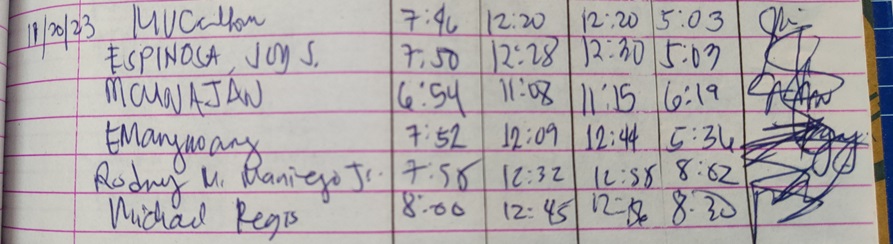 11/20/23 MVCallom 7:46 12:20 12:20 5:03
ESPINOSA, JOY S. 7:50 12:28 12:30 5:03
MCUNAJAN 6:54 11:08 11:15 6:19
EMangnoang 7:52 12:09 12:44 5:36
Rodney M. Maniego Jr. 7:58 12:32 12:58 8:02
Michael Regis 8:00 12:45 12:56 8:30